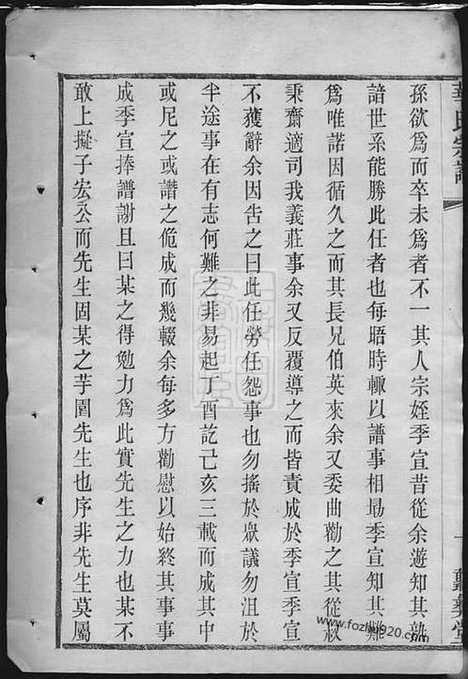 孫欲爲而卒未爲者不一其人宗姪季宣昔從余遊知其熟
諳世系能勝此任者也每晤時輒以譜事相勗季宣知其難
爲唯諾因循久之而其長兄伯英來余又委曲勸之其從叔
秉齋適司我義莊事余又反覆導之而皆責成於季宣季宣
不獲辭余因告之曰此任勞任怨事也勿搖於眾議勿沮於
半途事在有志何難之非易起丁酉訖己亥三載而成其中
或尼之或譖之佹成而幾輟余每多方勸慰以始終其事事
成季宣捧譜謝且曰某之得勉力爲此實先生之力也某不
敢上擬子宏公而先生固某之芋園先生也序非先生莫屬
氏宗譜
www.fozhu920.com